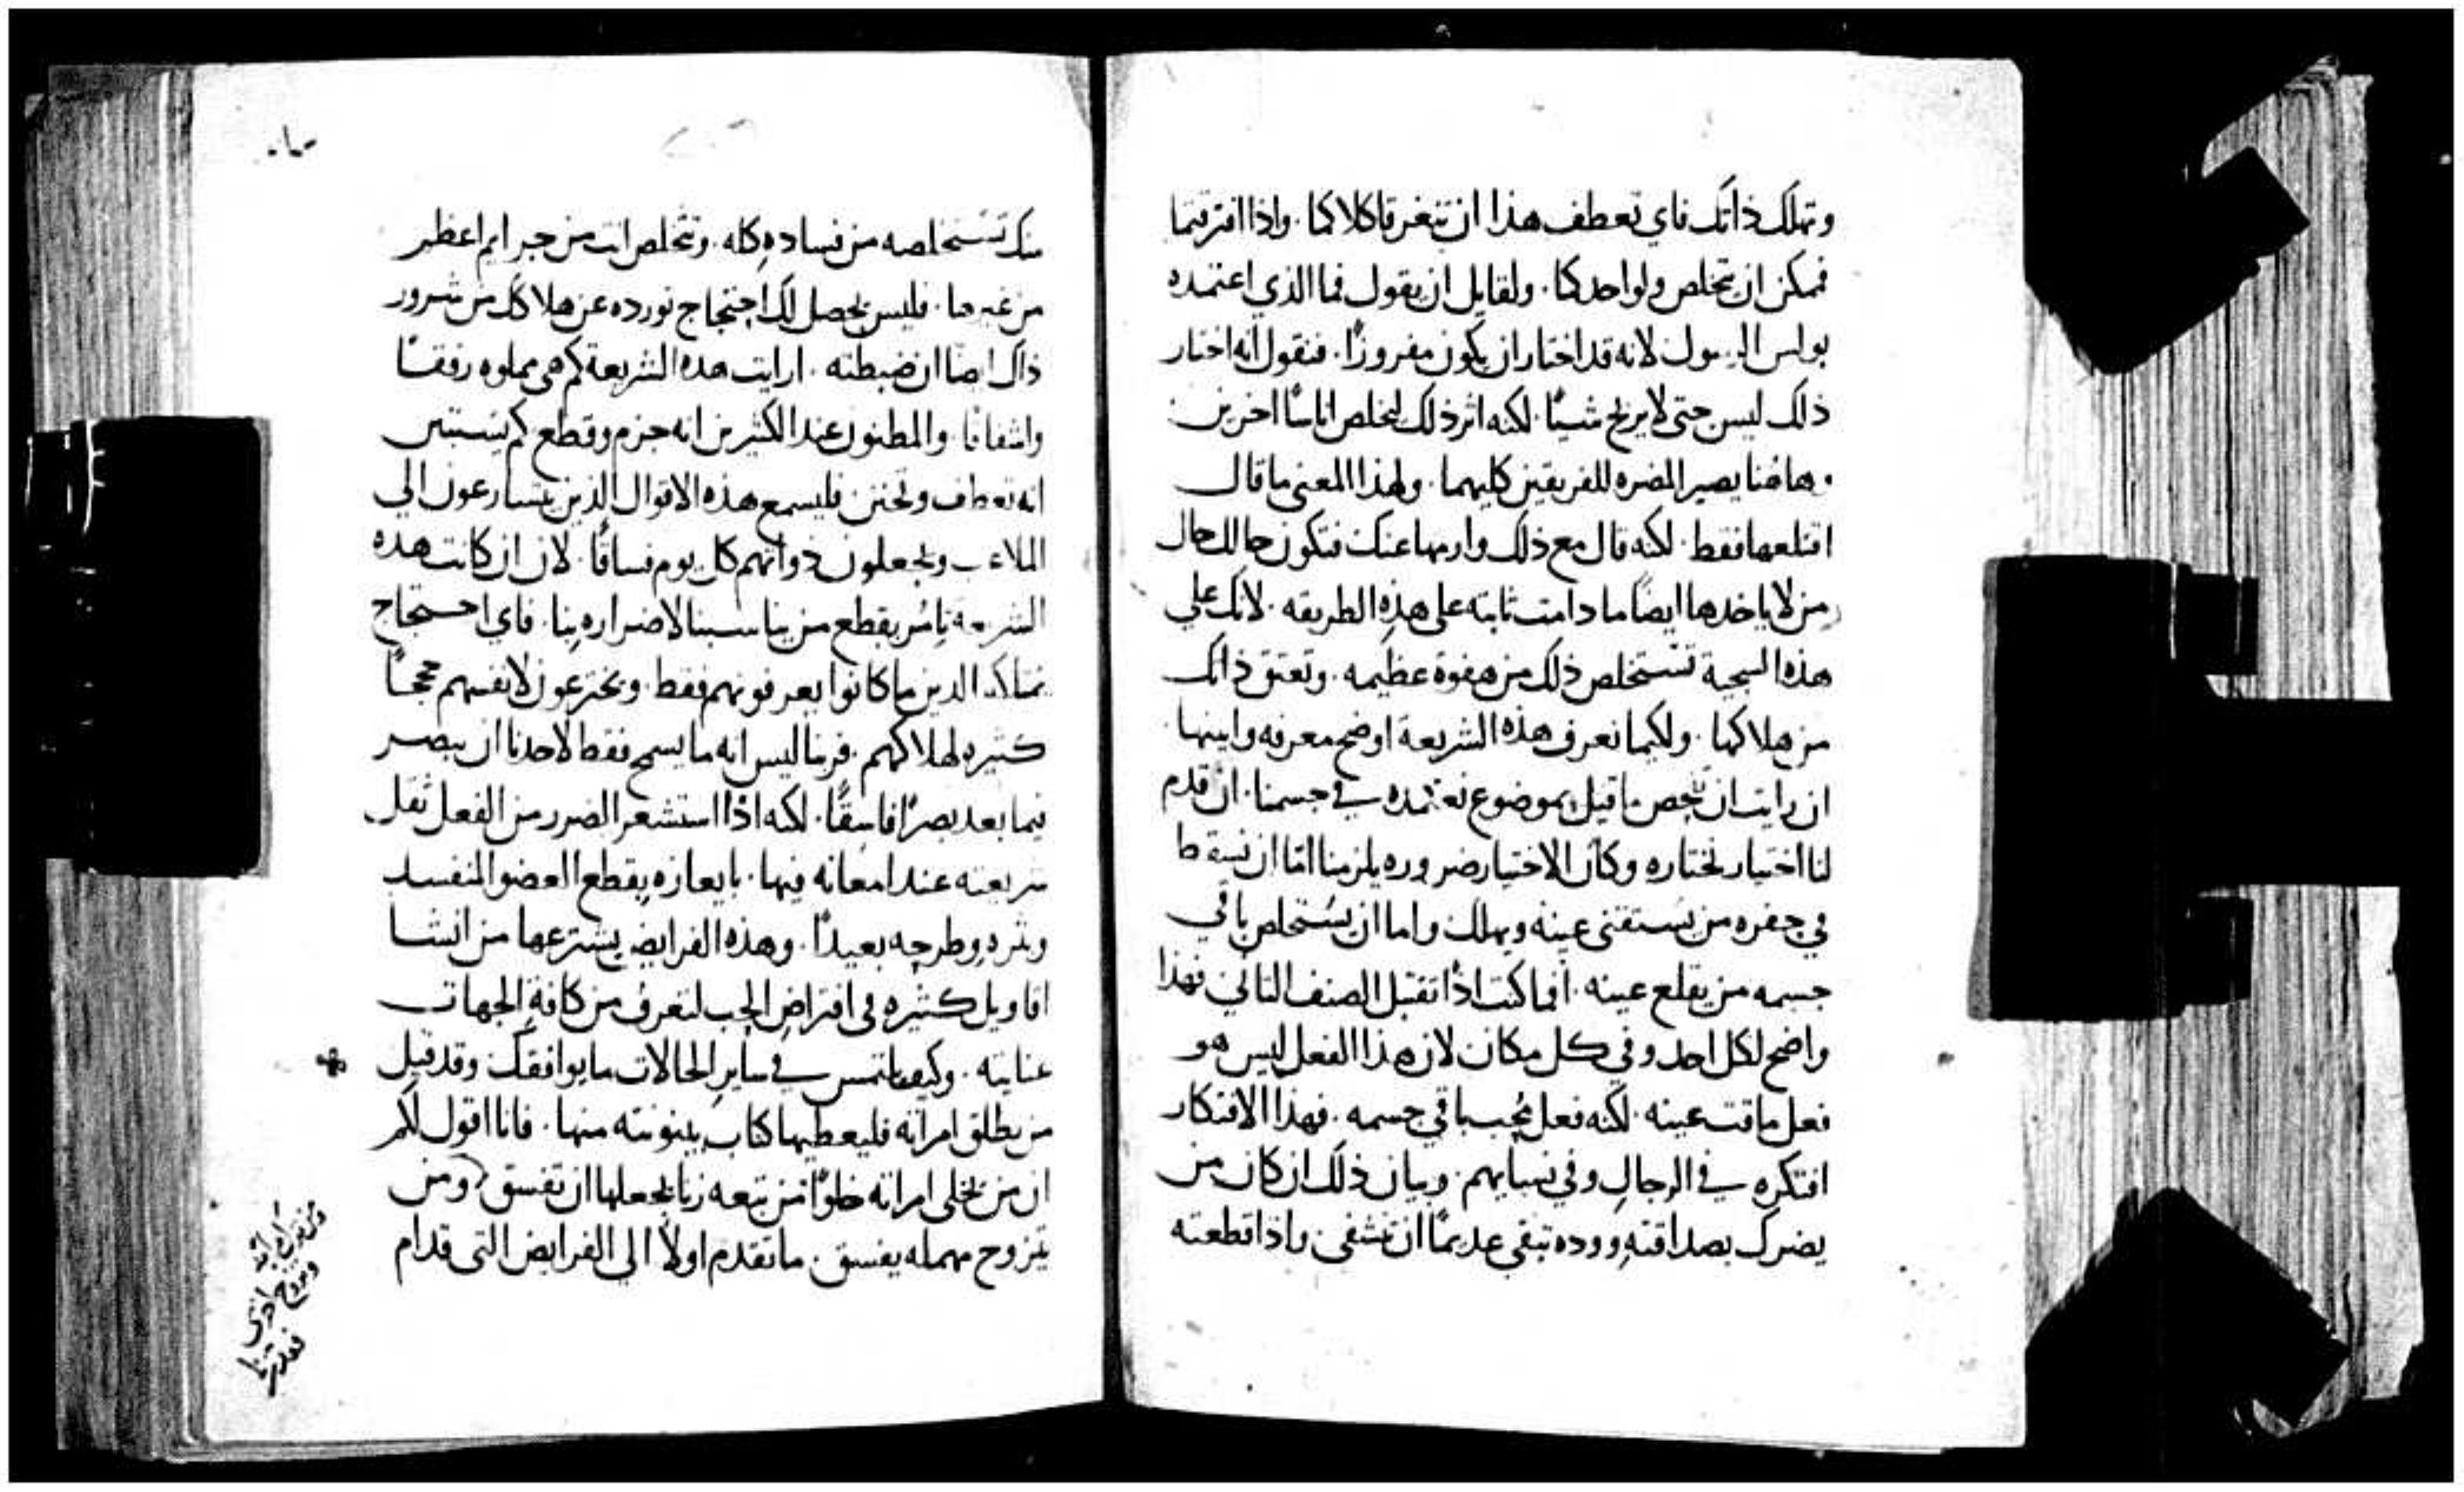 وتهلك ذاتك فاي تعطف هذا ان تتغرقا كلاكما. واذا افترقتما
فممكن ان يتخلص ولو احدكما. ولقايل ان يقول فما الذي اعتمده
بولس الرسول لانه قد اختار ان يكون مفروزًا. فنقول انه اختار
ذلك ليس حتى لا يربح شيًا. لكنه اثر ذلك ليخلص اناسًا اخرين.
وهاهنا يصير المضره للفريقين كليهما. ولهذا المعنى ما قال
اقتلعها فقط. لكنه قال مع ذلك وارمها عنك فتكون حالك حال
من لا ياخدها ايضًا ما دامت ثابته على هذه الطريقه. لانك علي
هذه السجية تستخلص ذلك من هفوة عظيمه. وتعتق ذاتك
من هلاكها. ولكيما نعرف هذه الشريعة اوضح معرفه وابينها
ان رايت ان نفحص ما قيل بموضوع نعتمده في جسمنا. ان قدم
لنا اختيار نختاره وكان الاختيار ضروره يلزمنا امّا ان نسقط
في حفره من يستقنى عينه ويهلك واما ان يستخلص باقي
جسمه من يقلع عينه. افما كنت اذًا تقتبل الصنف الثاني فهذا
واضح لكل احد وفي كل مكان لان هذا الفعل ليس هو
فعل ماقت عينه. لكنه فعل محب باقي جسمه. فهذا الافتكار
افتكره في الرجال وفي نسايهم. وبيان ذلك ان كان من
يضرك بصداقته ووده تبقى عديمًا ان تشفى واذا قطعته
منك تستخلصه من فساده كله. وتتخلص انت من جرايم اعظم
من غيرها. فليس يحصل لك احتجاج تورده عن هلاكك من شرور
ذاك ايضًا ان ضبطته. ارايت هذه الشريعة كم هي مملوه رفقًا
واشفاقًا. والمظنون عند الكثيرين انه جزم وقطع كم يستبين
انه تعطف وتحنن فليسمع هذه الاقوال الذين يتسارعون الي
الملاعب ويجعلون ذواتهم كل يوم فساقًا. لان ان كانت هذه
الشريعة تامُر بقطع من يناسبنا لاضراره بنا. فاي احتجاج
يمتلكه الدين ما كانوا يعرفونهم فقط. ويخترعون لانفسهم حججًا
كثيره لهلاكهم. فربنا ليس انه ما يسمح فقط لاحدنا ان يبصر
فيما بعد بصرًا فاسقًا. لكنه اذا استشعر الضرر من الفعل ثقل
شريعته عند امعانه فيها. بايعازه بقطع العضو المنفسد
وطرحه بعيدًا. وهذه الفرايض يشترعها من انشا
اقاويل كثيره في افتراض الحب لتعرف من كافة الجهات
عنايته. وكيف يلتمس في ساير الحالات ما يوافقك وقد قيل
من يطلق امراته فليعطيها كتاب بينونته منها. فانا اقول لكم
ان من يخلي امراته خلوًا من تبعه زنا يجعلها ان تفسق ومن
يتزوج مهمله يفسق. ما تقدم اولًا الي الفرايض التى قدام
ويزوج اخرى
فقد زنا